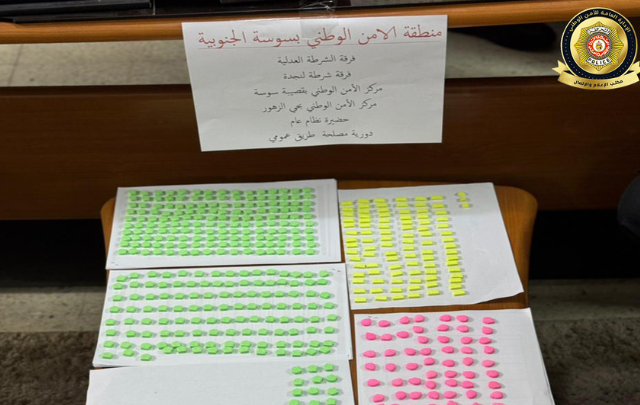 منطقة الامن الوطني بسوسة الجنوبية
فرقة الشرطة العدلية
فرقة شرطة لنجدة
مركز الأمن الوطني بقصيبة سوسة
مركز الأمن الوطني بحي الزهور
حضيرة نظام عام
دورية مصلحة طريق عمومي
الإدارة العامة للأمن الوطني
POLICE
مكتب الإعلام والإتصال